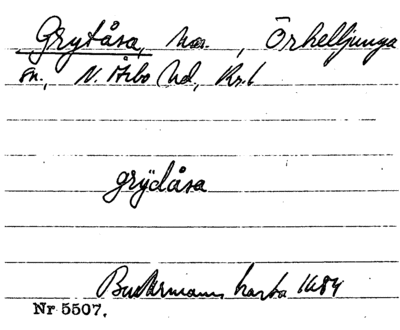 Grytåsa, hmn., Örkelljunga
sn., N. Åsbo hd, Kr.l
grÿdåsa
Buhrmanns karta 1684
Nr 5507.